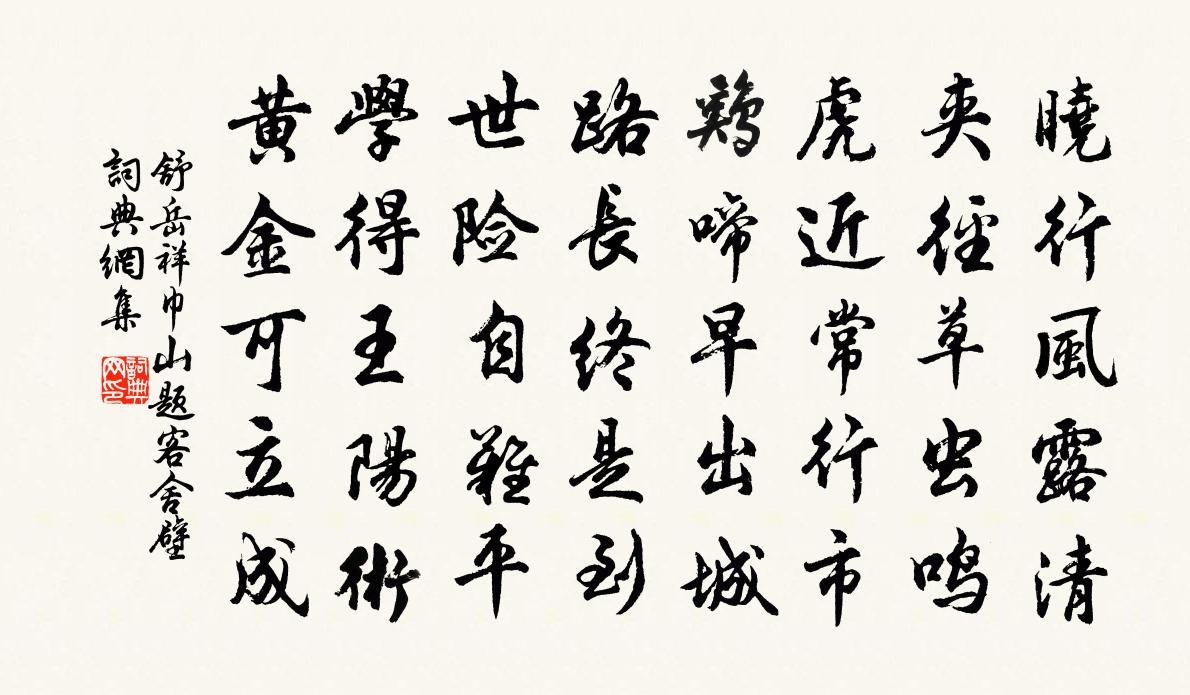 曉行風露清
夾徑草虫鳴
虎近常行市
鷄啼早出城
路長終是到
世險自難平
學得王陽術
黃金可立成
舒岳祥巾山题客舍壁
詞典網集
詞典网印